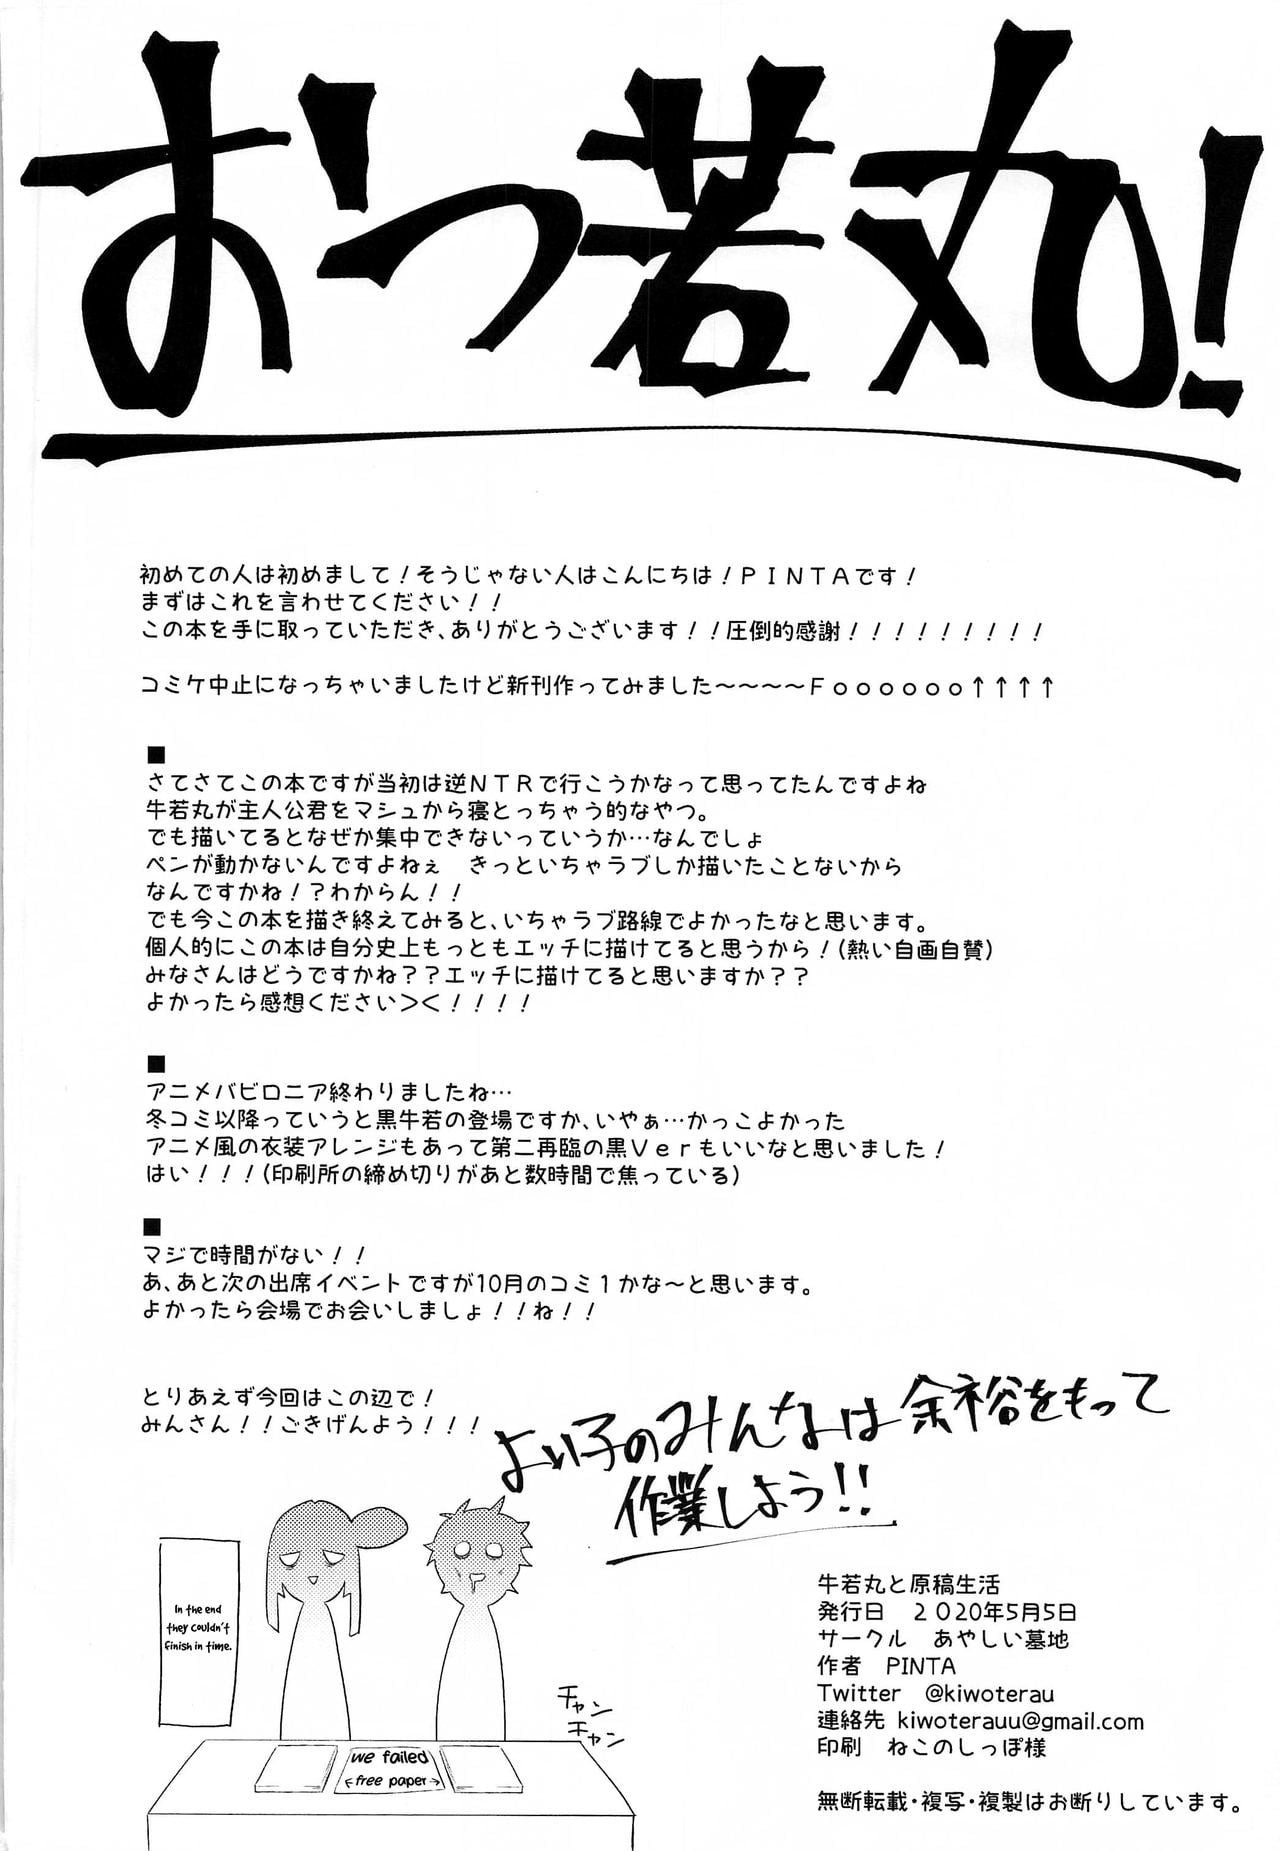 おつ若丸!
初めての人は初めまして！そうじゃない人はこんにちは！ＰＩＮＴＡです！
まずはこれを言わせてください！！
この本を手に取っていただき、ありがとうございます！！圧倒的感謝！！！！！！！！！
コミケ中止になっちゃいましたけど新刊作ってみました～～～～Ｆｏｏｏｏｏｏ↑↑↑↑
■
さてさてこの本ですが当初は逆ＮＴＲで行こうかなって思ってたんですよね
牛若丸が主人公君をマシュから寝とっちゃう的なやつ。
でも描いてるとなぜか集中できないっていうか…なんでしょ
ペンが動かないんですよねぇ　きっといちゃラブしか描いたことないから
なんですかね！？わからん！！
でも今この本を描き終えてみると、いちゃラブ路線でよかったなと思います。
個人的にこの本は自分史上もっともエッチに描けてると思うから！(熱い自画自賛)
みなさんはどうですかね？？エッチに描けてると思いますか？？
よかったら感想ください＞＜！！！！
■
アニメバビロニア終わりましたね…
冬コミ以降っていうと黒牛若の登場ですか、いやぁ…かっこよかった
アニメ風の衣装アレンジもあって第二再臨の黒Ｖｅｒもいいなと思いました！
はい！！！(印刷所の締め切りがあと数時間で焦っている)
■
マジで時間がない！！
あ、あと次の出席イベントですが10月のコミ１かな～と思います。
よかったら会場でお会いしましょ！！ね！！
とりあえず今回はこの辺で！
みんさん！！ごきげんよう！！！
よい子のみんなは余裕をもって
作業しよう!!
In the end
they couldn't
finish in time.
チャン
チャン
we failed
←free paper→
牛若丸と原稿生活
発行日　２０２０年５月５日
サークル　あやしい墓地
作者　PINTA
Twitter　@kiwoterau
連絡先 kiwoterauu@gmail.com
印刷　ねこのしっぽ様
無断転載・複写・複製はお断りしています。